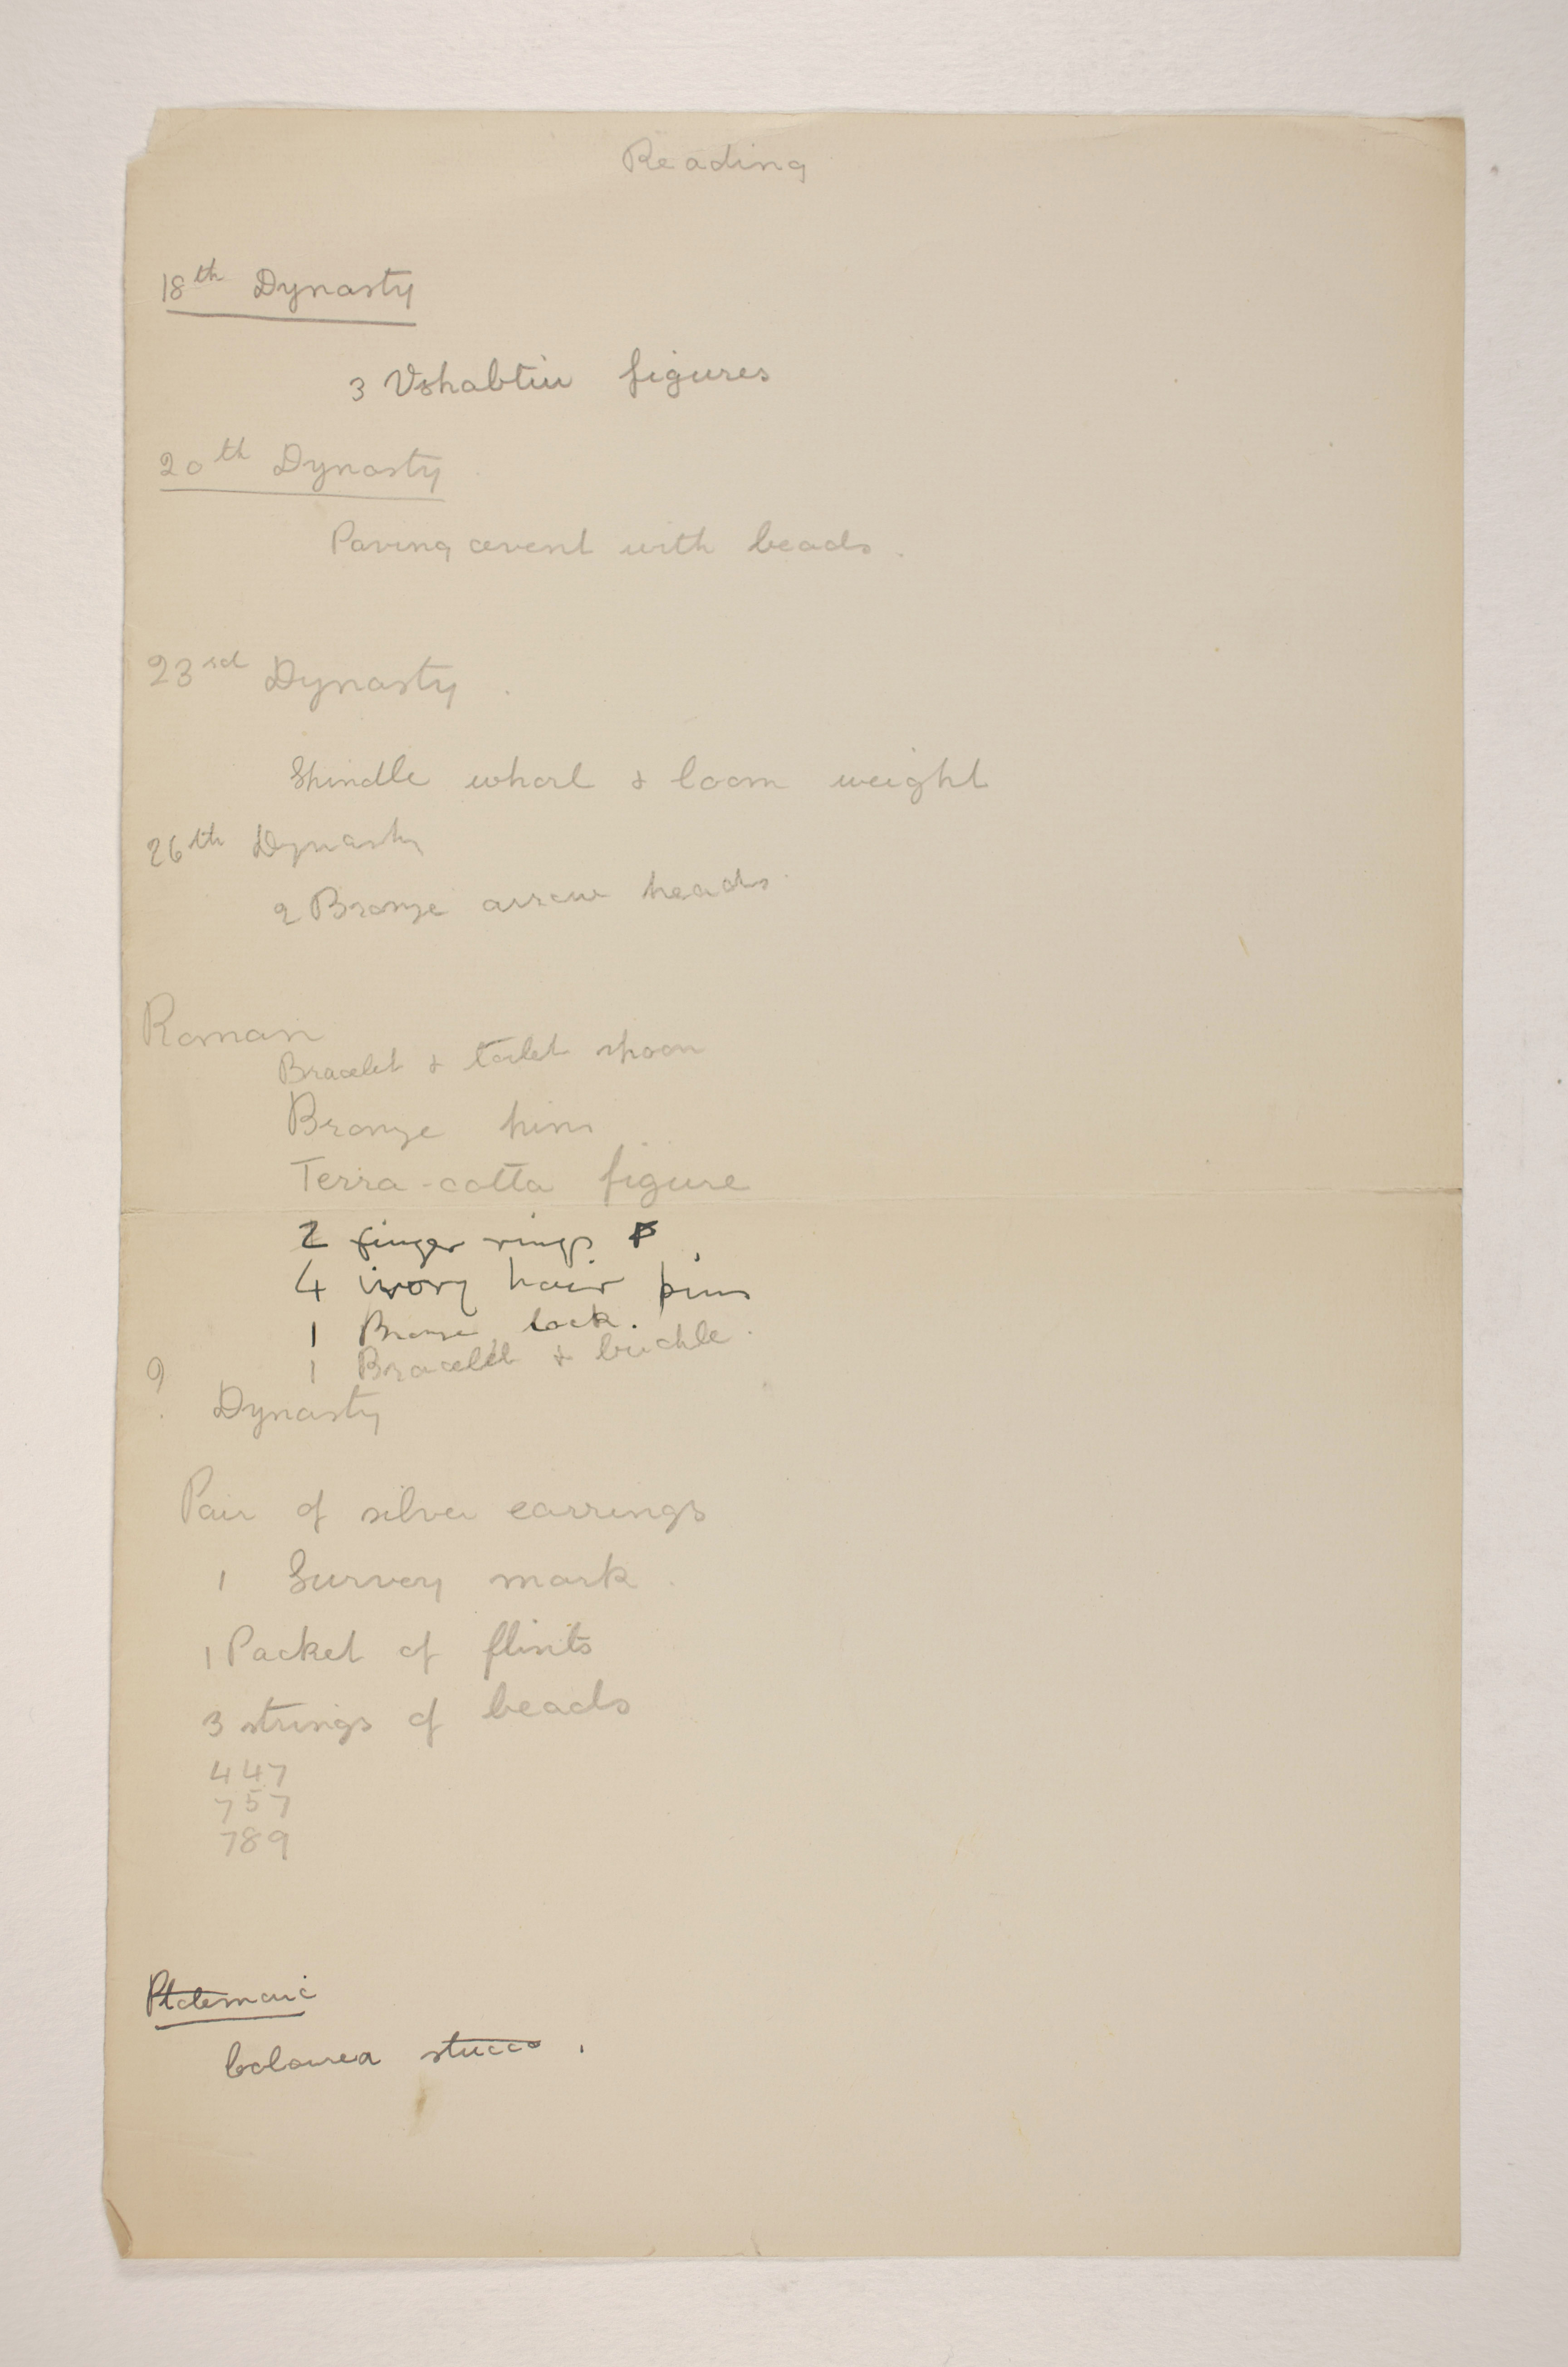 Reading
18th Dynasty
3 Ushabtiu figures
20th Dynasty
Paving cement with beads.
23rd Dynasty.
Spindle whorl & loom weight
26th Dynasty
2 Bronze arrow heads.
Roman
Bracelet & toilet spoon
Bronze pins
Terra-cotta figure
2 finger rings
4 ivory hair pins
1 Bronze lock.
1 Bracelet & buckle.
? Dynasty
Pair of silver earrings
1 Survey mark.
1 Packet of flints
3 strings of beads
447
757
789
Ptolemaic
Coloured stucco.